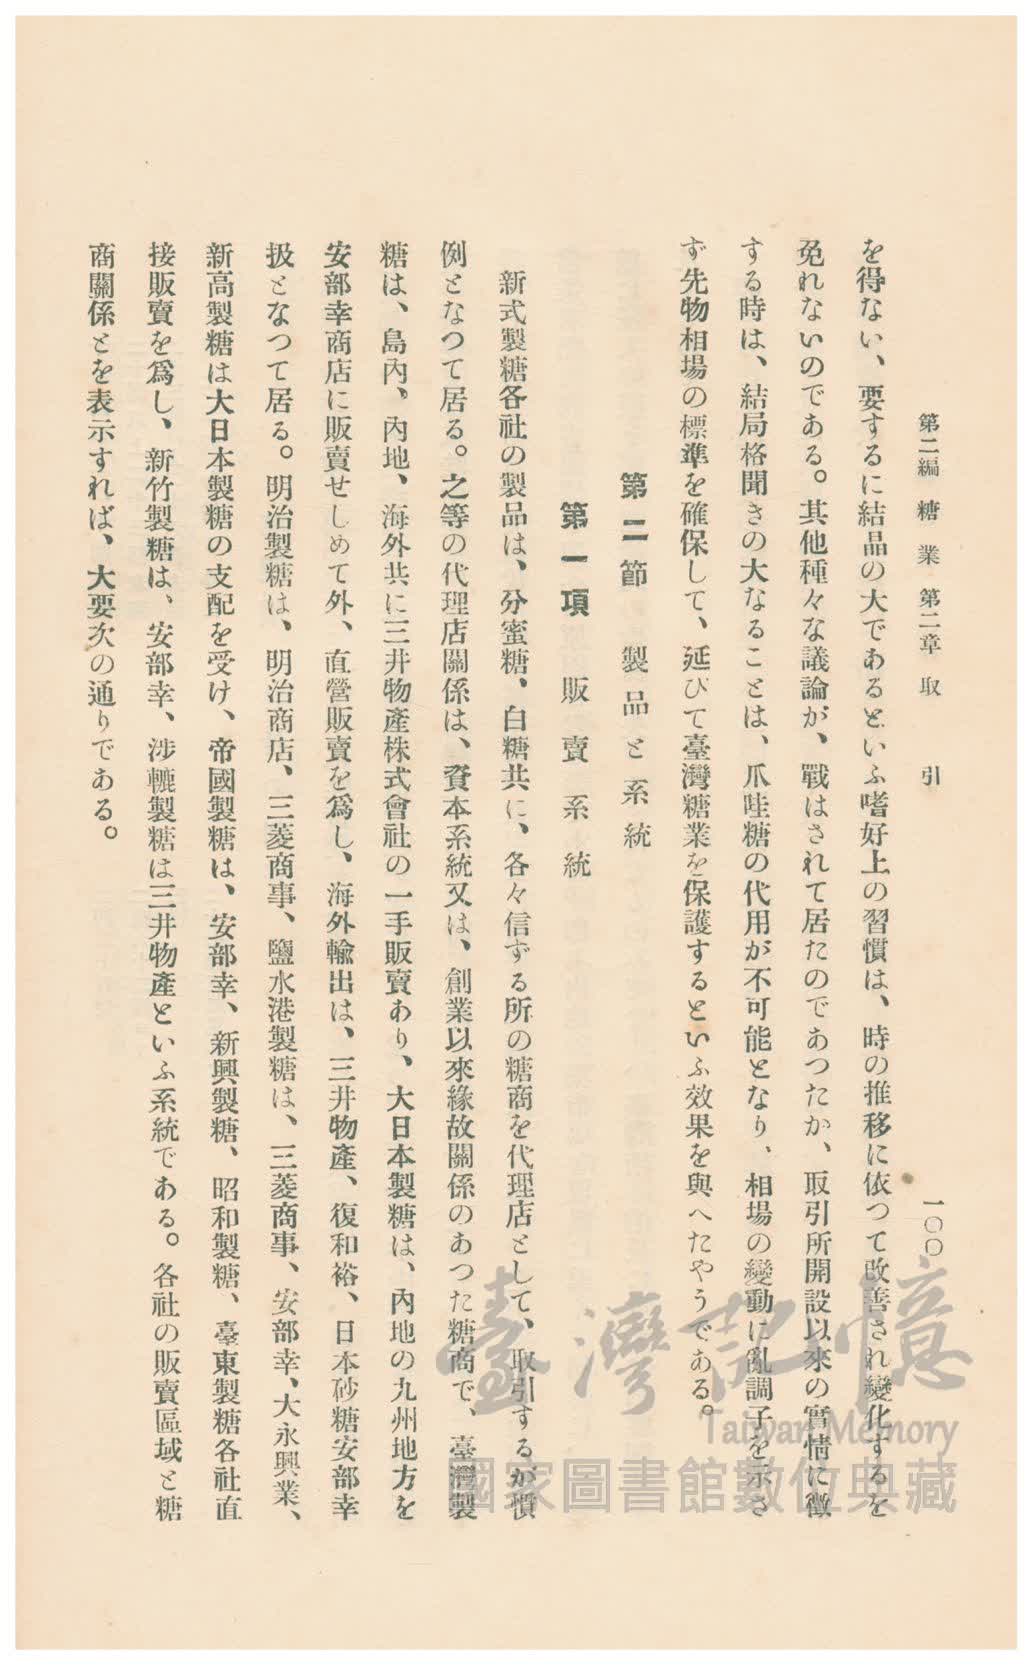 第二編 糖業 第二章 取引 一〇〇
を得ない、要するに結晶の大であるといふ嗜好上の習慣は、時の推移に依つて改善され變化するを
免れないのである。其他種々な議論が、戰はされて居たのであつたか、取引所開設以來の實情に徵
する時は、結局格聞きの大なることは、爪哇糖の代用が不可能となり、相場の變動に亂調子を示さ
ず先物相場の標準を確保して、延びて臺灣糖業を保護するといふ效果を與へたやうである。
第二節 製品と系統
第一項 販賣系統
新式製糖各社の製品は、分蜜糖、白糖共に、各々信ずる所の糖商を代理店として、取引するが慣
例となつて居る。之等の代理店關係は、資本系統又は、創業以來緣故關係のあつた糖商で、臺灣製
糖は、島內、內地、海外共に三井物產株式會社の一手販賣あり、大日本製糖は、內地の九州地方を
安部幸商店に販賣せしめて外、直營販賣を爲し、海外輸出は、三井物產、復和裕、日本砂糖安部幸
扱となつて居る。明治製糖は、明治商店、三菱商事、鹽水港製糖は、三菱商事、安部幸、大永興業、
新高製糖は大日本製糖の支配を受け、帝國製糖は、安部幸、新興製糖、昭和製糖、臺東製糖各社直
接販賣を爲し、新竹製糖は、安部幸、沙轆製糖は三井物產といふ系統である。各社の販賣區域と糖
商關係とを表示すれば、大要次の通りである。
臺灣記憶
Taiwan Memory
國家圖書館數位典藏